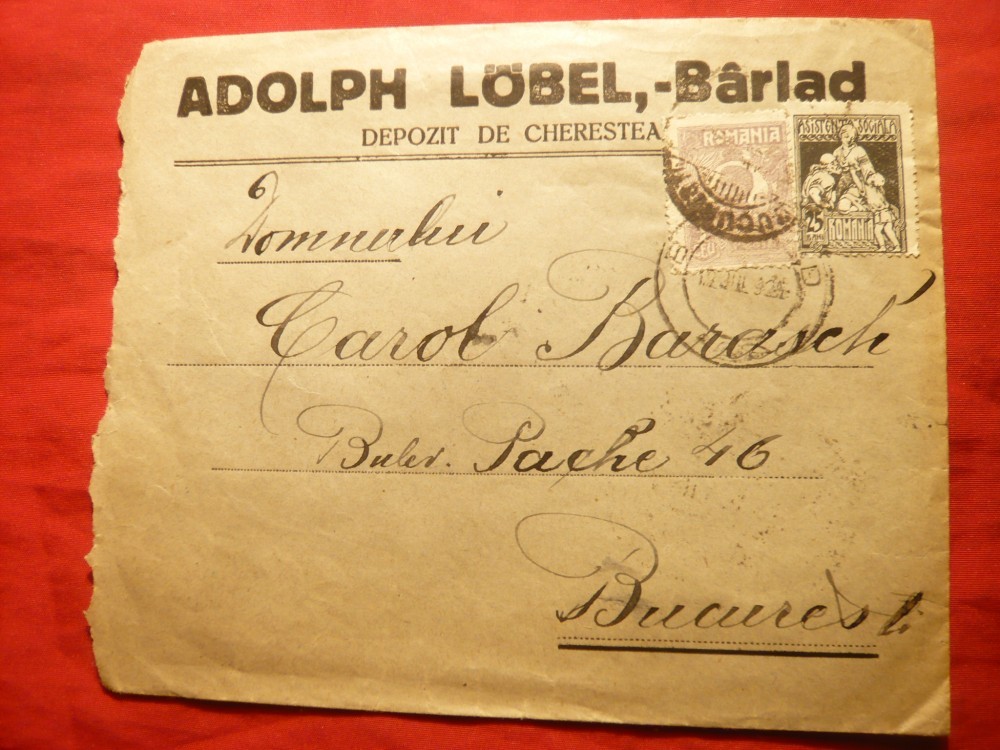 ADOLPH LÖBEL,-Bârlad
DEPOZIT DE CHERESTEA
ROMANIA
ASISTENȚA SOCIALA
25
BANI
ROMANIA
Domnului
Carol Barasch
Bulev. Pache 46
Bucuresti